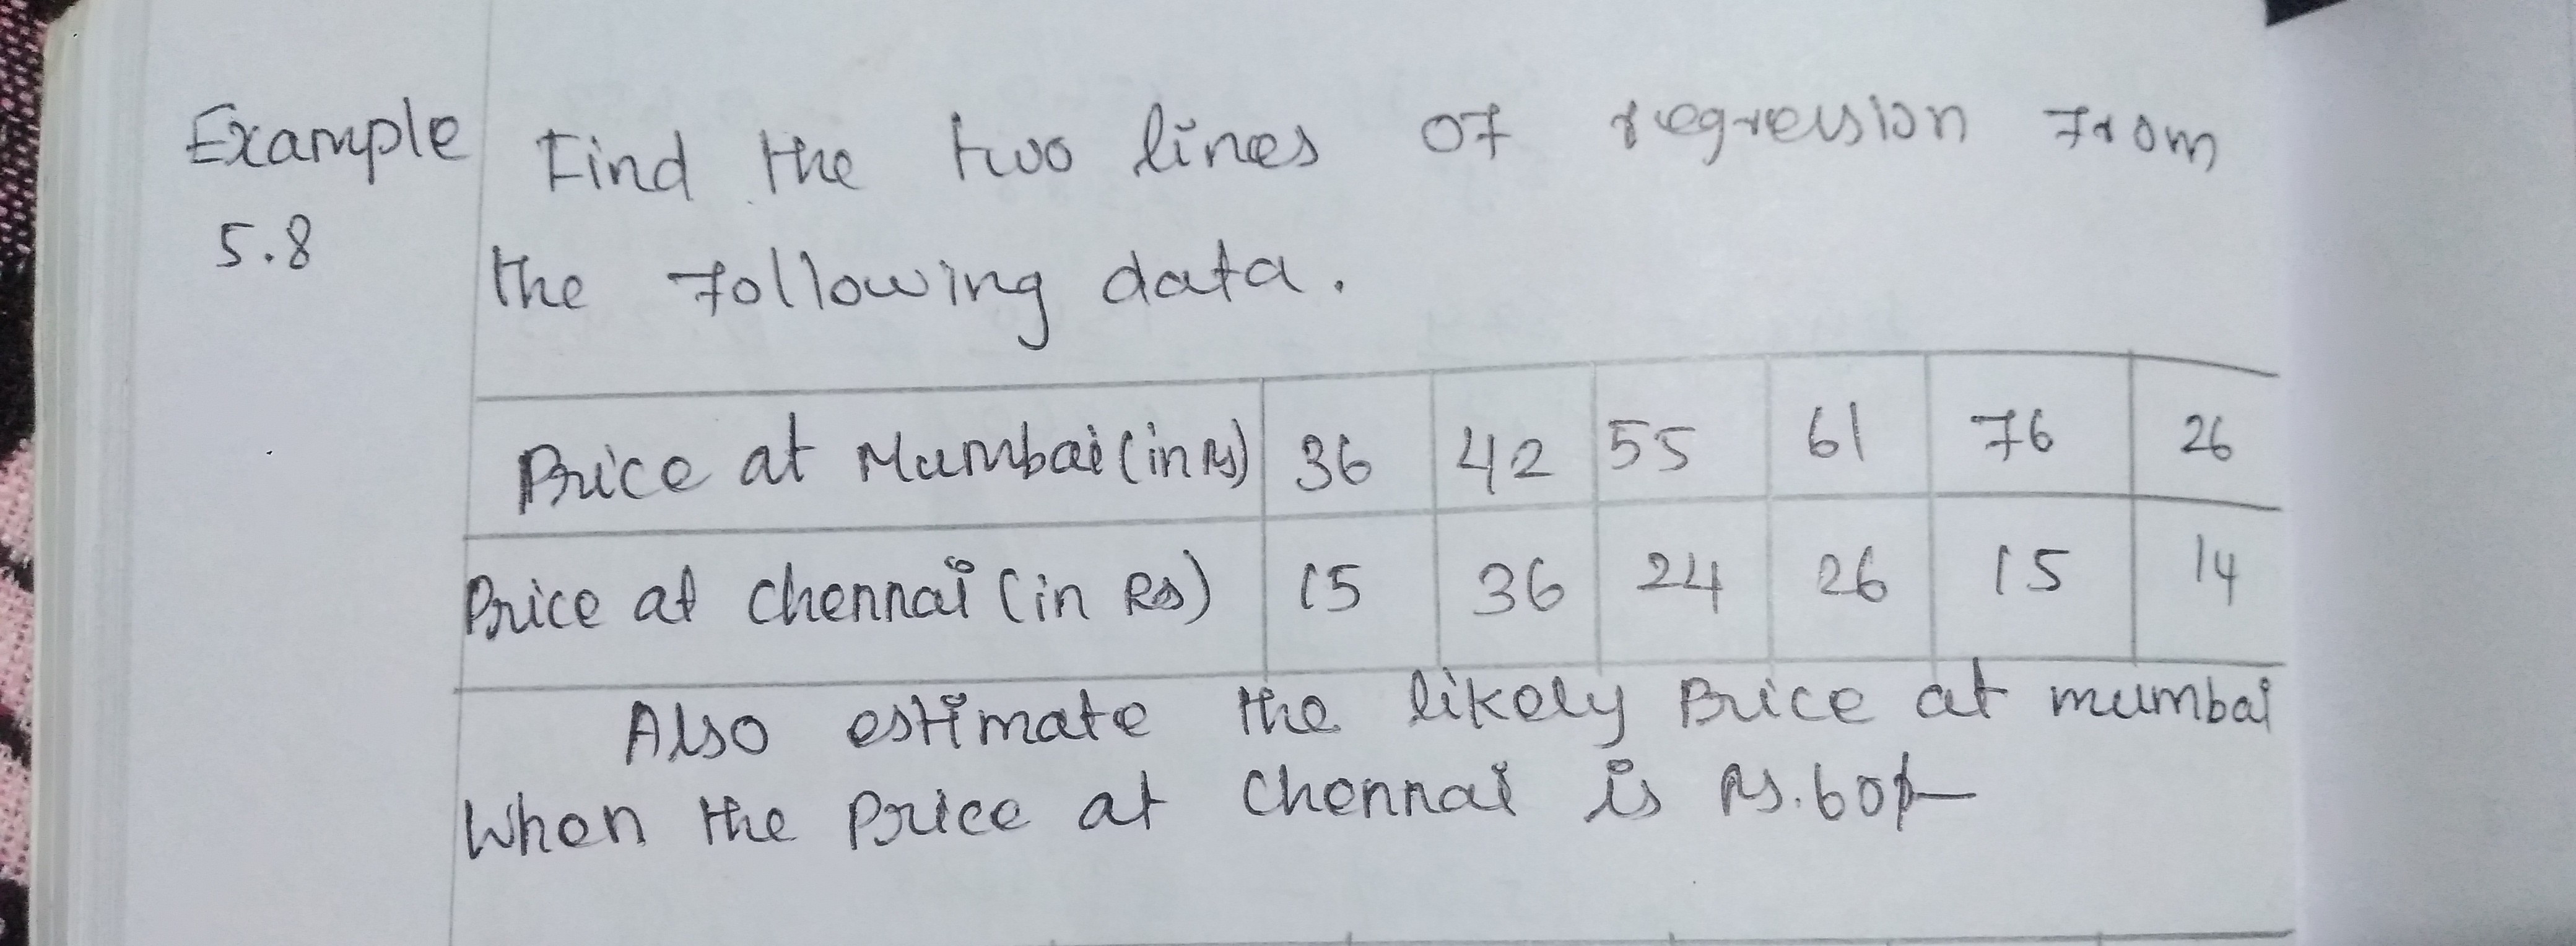 Example 5.8
Find the two lines of regression from
the following data.
Price at Mumbai (in Rs) 36 42 55 61 76 26
Price at chennai (in Rs) 15 36 24 26 15 14
Also estimate the likely Price at mumbai
When the Price at Chennai is Rs. 60/-